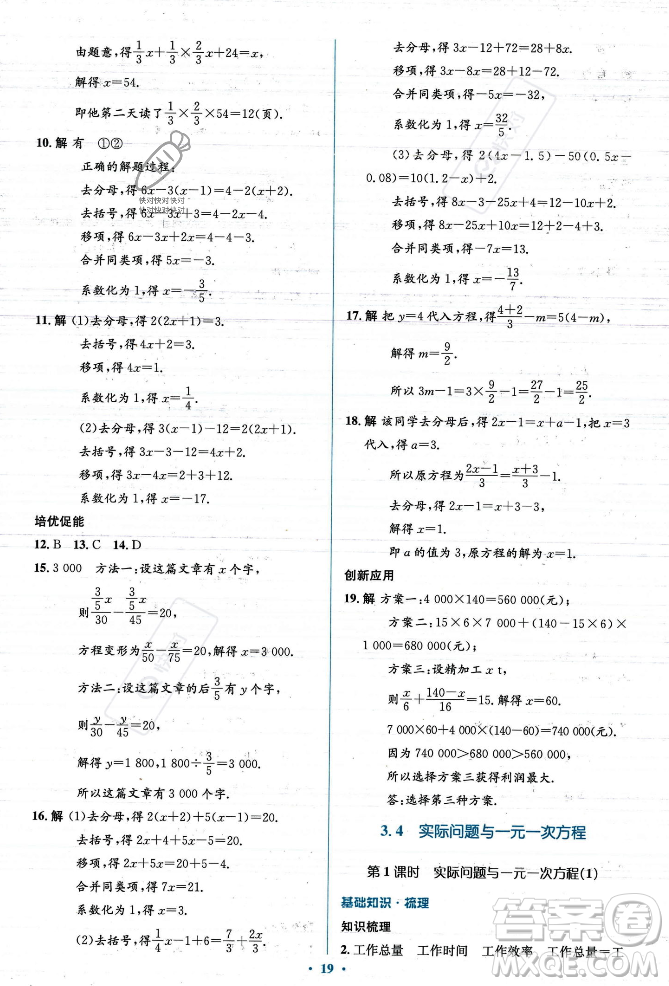 由题意,得 1/3 x+1/3×2/3 x+24=x,
解得 x=54.
即他第二天读了 1/3×2/3×54=12(页).
10. 解 有 ①②
正确的解题过程:
去分母,得 6x-3(x-1)=4-2(x+2).
去括号,得 6x-3x+3=4-2x-4.
移项,得 6x-3x+2x=4-4-3.
合并同类项,得 5x=-3.
系数化为 1,得 x=-3/5.
11. 解 (1)去分母,得 2(2x+1)=3.
去括号,得 4x+2=3.
移项,得 4x=1.
系数化为 1,得 x=1/4.
(2)去分母,得 3(x-1)-12=2(2x+1).
去括号,得 3x-3-12=4x+2.
移项,得 3x-4x=2+3+12.
系数化为 1,得 x=-17.
培优促能
12. B 13. C 14. D
15. 3 000 方法一:设这篇文章有 x 个字,
则 (3/5 x)/30-(3/5 x)/45=20,
方程变形为 x/50-x/75=20,
解得 x=3 000.
方法二:设这篇文章的 3/5 有 y 个字,
则 y/30-y/45=20,
解得 y=1 800,1 800÷3/5=3 000.
所以这篇文章有 3 000 个字.
16. 解 (1)去括号,得 2(6x+2)+2=5x.
去括号,得 12x+4+2=5x.
移项,得 12x-5x=-4-2.
合并同类项,得 7x=-6.
系数化为 1,得 x=-6/7.
(2)去括号,得 x/4-1+6=7/3+2x/3.
去分母,得 3x-12+72=28+8x.
移项,得 3x-8x=28+12-72.
合并同类项,得 -5x=-32.
系数化为 1,得 x=32/5.
(3)去分母,得 2(4x-1.5)-50(0.5x-
0.08)=10(1.2-x).
去括号,得 8x-3-25x+4=12-10x.
移项,得 8x-25x+10x=12+3-4.
合并同类项,得 -7x=11.
17. 解 把 y=4 代入方程,得 (4+2)/3-m=5(4-m).
解得 m=9/2.
所以 3m-1=3×9/2-1=27/2-1=25/2.
18. 解 该同学去分母后,得 2x-1=x+a-1,把 x=3
代入,得 a=3.
所以原方程为 (2x-1)/3=(x+3)/3-1.
解得 x=1.
即 a 的值为 3,原方程的解为 x=1.
创新应用
19. 解 方案一:4 000×140=560 000(元);
方案二:15×6×7 000+(140-15×6)×
1 000=680 000(元);
方案三:设精加工 x t,
则 x/6+(140-x)/16=15.
解得 x=60.
7 000×60+4 000×80=740 000(元).
因为 740 000>680 000>560 000,
所以选择方案三获得利润最大.
答:选择第三种方案.
3.4 实际问题与一元一次方程
第 1 课时 实际问题与一元一次方程(1)
基础知识·梳理
知识梳理
2. 工作总量 工作时间 工作效率 工作总量=工
19
快对快对快对
快对快对快对
答案卷
MXQE.COM